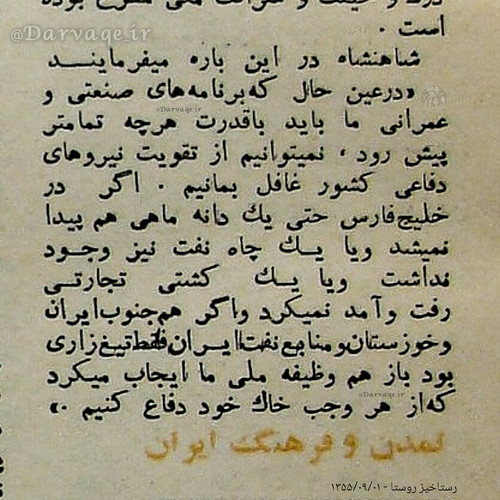 @Darvaqe.ir
است .
شاهنشاه در این باره میفرمایند
«درعین حال که‌برنامه‌های صنعتی و
@Darvaqe.ir
عمرانی ما باید باقدرت هرچه تمامتر
پیش رود ، نمیتوانیم از تقویت نیروهای
دفاعی کشور غافل بمانیم . اگر در
خلیج‌فارس حتی یك دانه ماهی هم پیدا
نمیشد ویا یــك چاه نفت نیز وجـود
نداشت ویا یــك کشتی تجارتـی
رفت و آمد نمیکرد واگر هم‌جنوب‌ایران
وخوزستان‌ومنابع‌نفت‌ایـران‌فقط‌تیغ‌زاری
بود باز هم وظیفه ملی ما ایجاب میکرد
@Darvaqe.ir
که‌از هر وجب خاك خود دفاع کنیم .»
تمدن و فرهنگ ایران
رستاخیز روستا - ۱۳۵۵/۰۹/۰۱